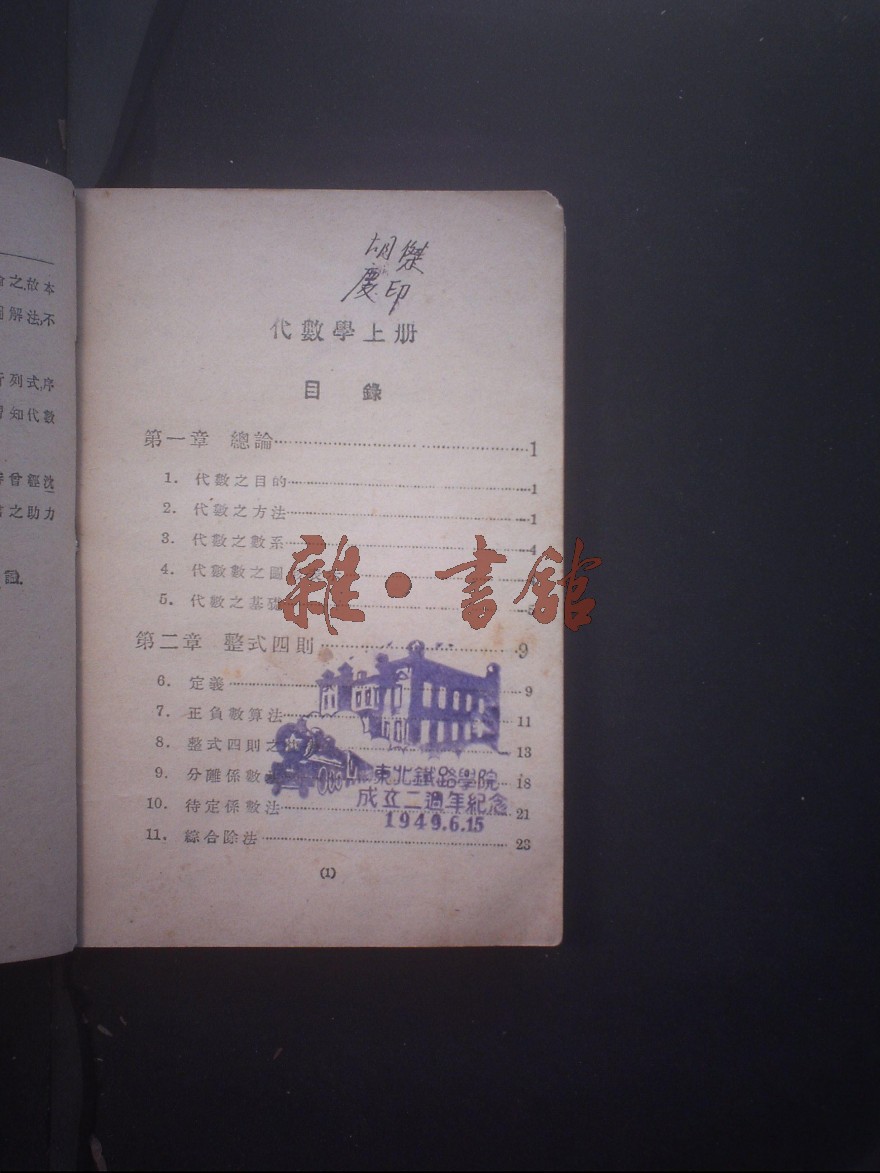 之,故本
解法,不
列式,序
知代數
曾經沈
之助力
識.
胡傑
慶印
代數學上册
目 錄
第一章 總論 1
1. 代數之目的 1
2. 代數之方法 1
3. 代數之數系 4
4. 代數數之圖
5. 代數之基礎
雜·書館
第二章 整式四則 9
6. 定義 9
7. 正負數算法 11
8. 整式四則之 13
9. 分離係數 18
10. 待定係數法 21
11. 綜合除法 23
東北鐵路學院
成立二週年紀念
1949.6.15
(1)